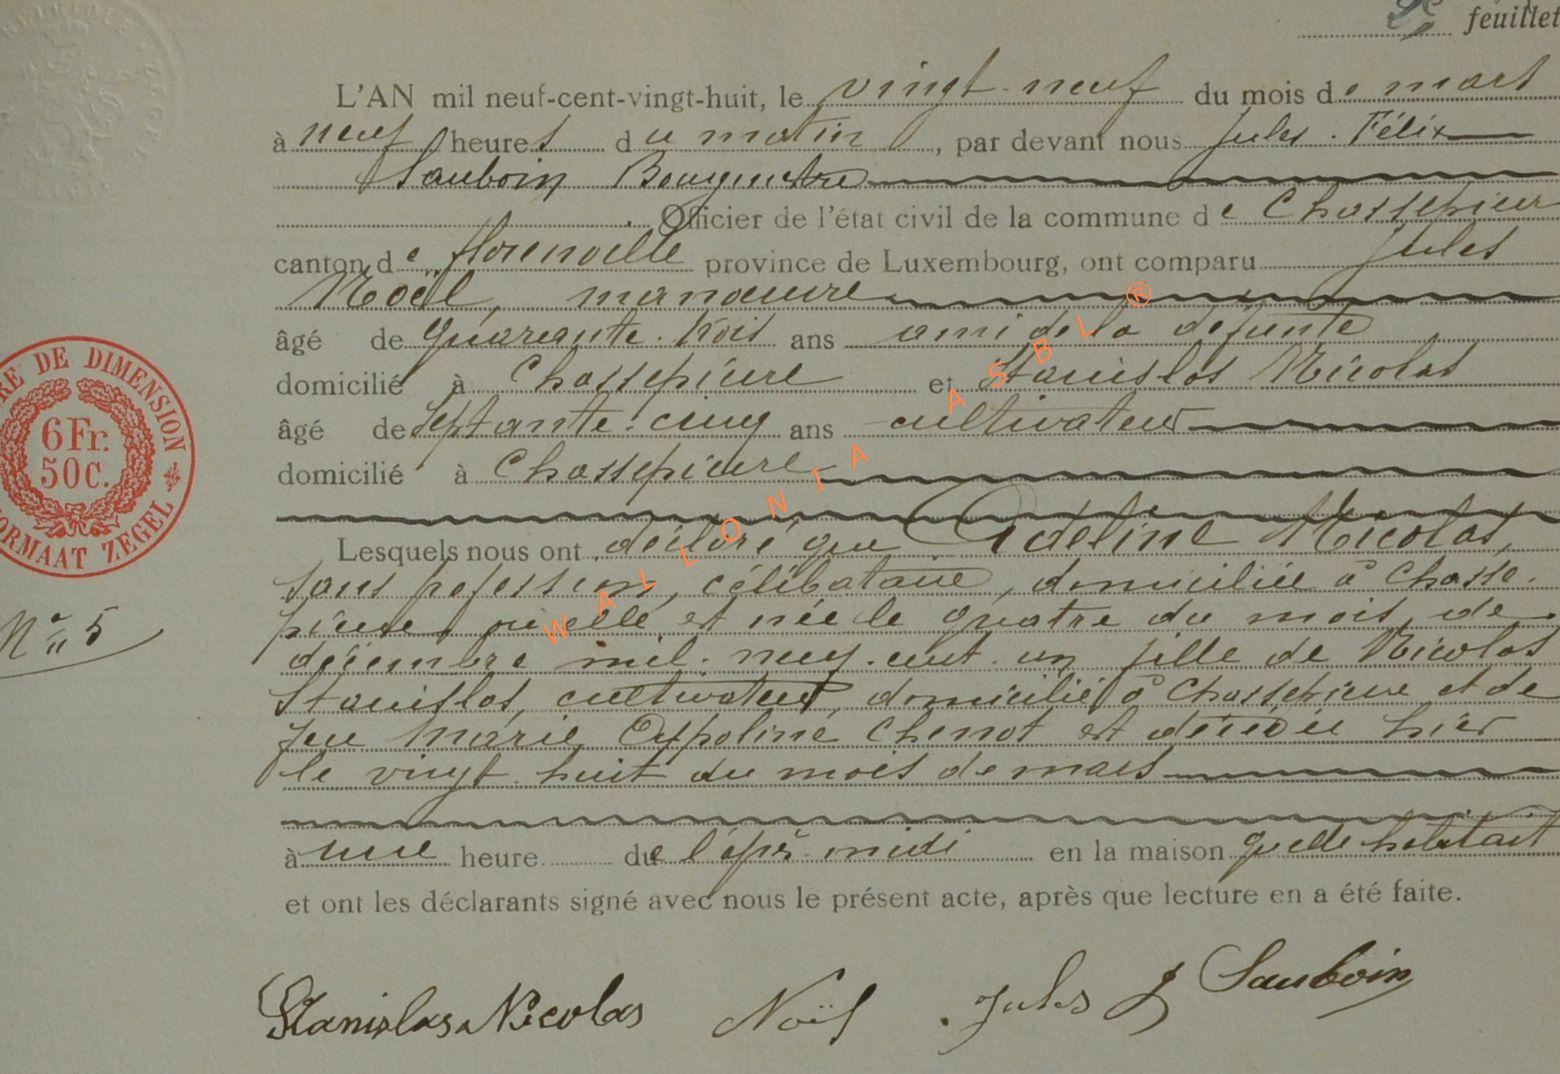 2e feuillet
L'AN mil neuf-cent-vingt-huit, le vingt-neuf du mois de mars
à neuf heures du matin, par devant nous Jules. Félix
Sauboin Bourgmestre
Officier de l'état civil de la commune de Chassepierre
canton de florenville province de Luxembourg, ont comparu Jules
Noël, manœuvre
âgé de quarante-trois ans ami de la défunte
domicilié à Chassepierre et Stanislas Nicolas
âgé de septante-cinq ans cultivateur
domicilié à Chassepierre
Lesquels nous ont déclaré que Adeline Nicolas,
sans profession, célibataire, domiciliée à Chasse-
pierre, où elle est née le quatre du mois de
décembre mil-neuf-cent-un fille de Nicolas
Stanislas, cultivateur, domicilié à Chassepierre et de
feu Marie Appoline Chenot est décédée hier
le vingt-huit du mois de mars
à une heure de l'après-midi en la maison qu'elle habitait
et ont les déclarants signé avec nous le présent acte, après que lecture en a été faite.
Stanislas Nicolas Noël Jules J Sauboin
RE DE DIMENSION
6Fr.
50C.
FORMAAT ZEGEL
No 5
WALLONIA ASBL ®